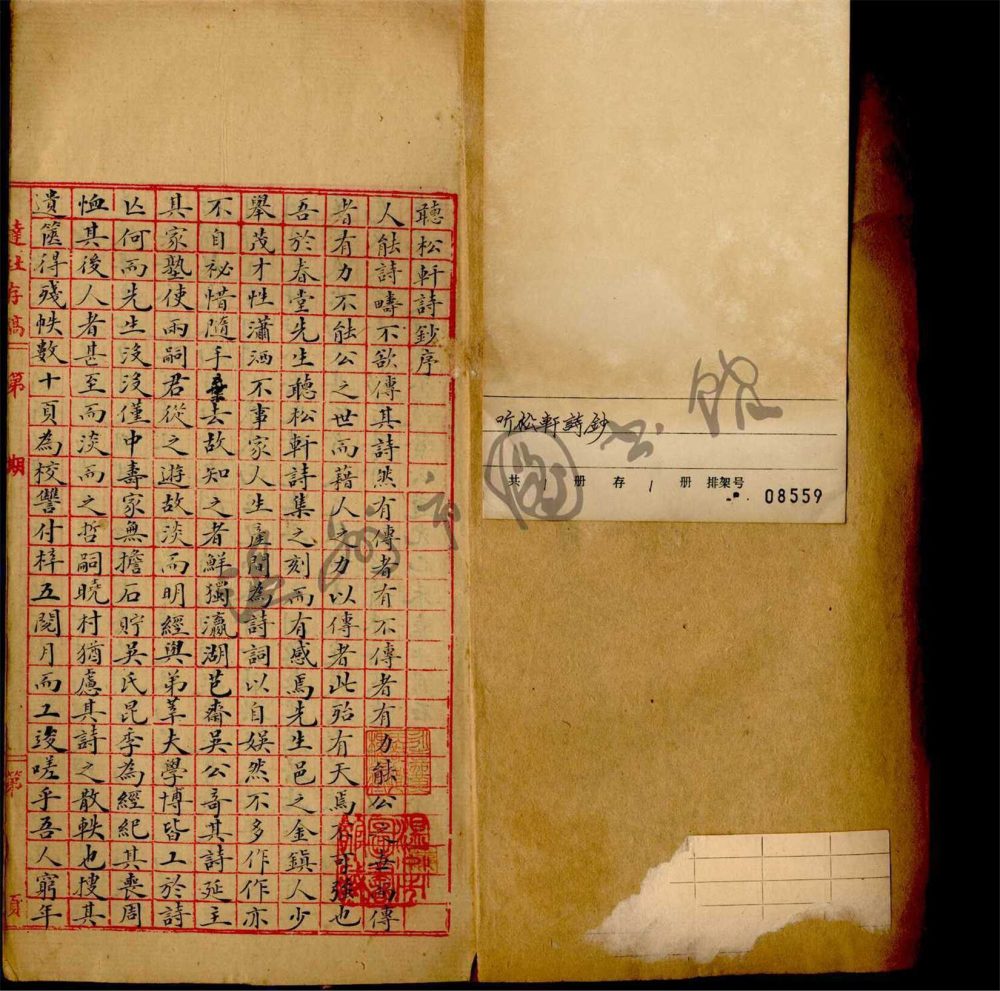 听松軒詩鈔
共 1 册 存 1 册 排架号
08559
聽松軒詩鈔序
人能詩疇不欲傳其詩然有傳者有不傳者有力能公世而傳
者有力不能公之世而藉人之力以傳者此殆有天焉不可強也
吾於春堂先生聽松軒詩集之刻而有感焉先生邑之金鎮人少
舉茂才性瀟洒不事家人生產間為詩詞以自娛然不多作作亦
不自祕惜隨手去故知之者鮮獨瀛湖芑齋吳公奇其詩延主
其家塾使兩嗣君從之遊故淡而明經與弟莘夫學博皆工於詩
亾何而先生沒沒僅中壽家無擔石貯吳氏昆季為經紀其喪周
恤其後人者甚至而淡而之哲嗣曉村猶慮其詩之散軼也搜其
遺篋得殘帙數十頁為校讐付梓五閱月而工竣嗟乎吾人窮年
達社存稿 第 期 第 頁